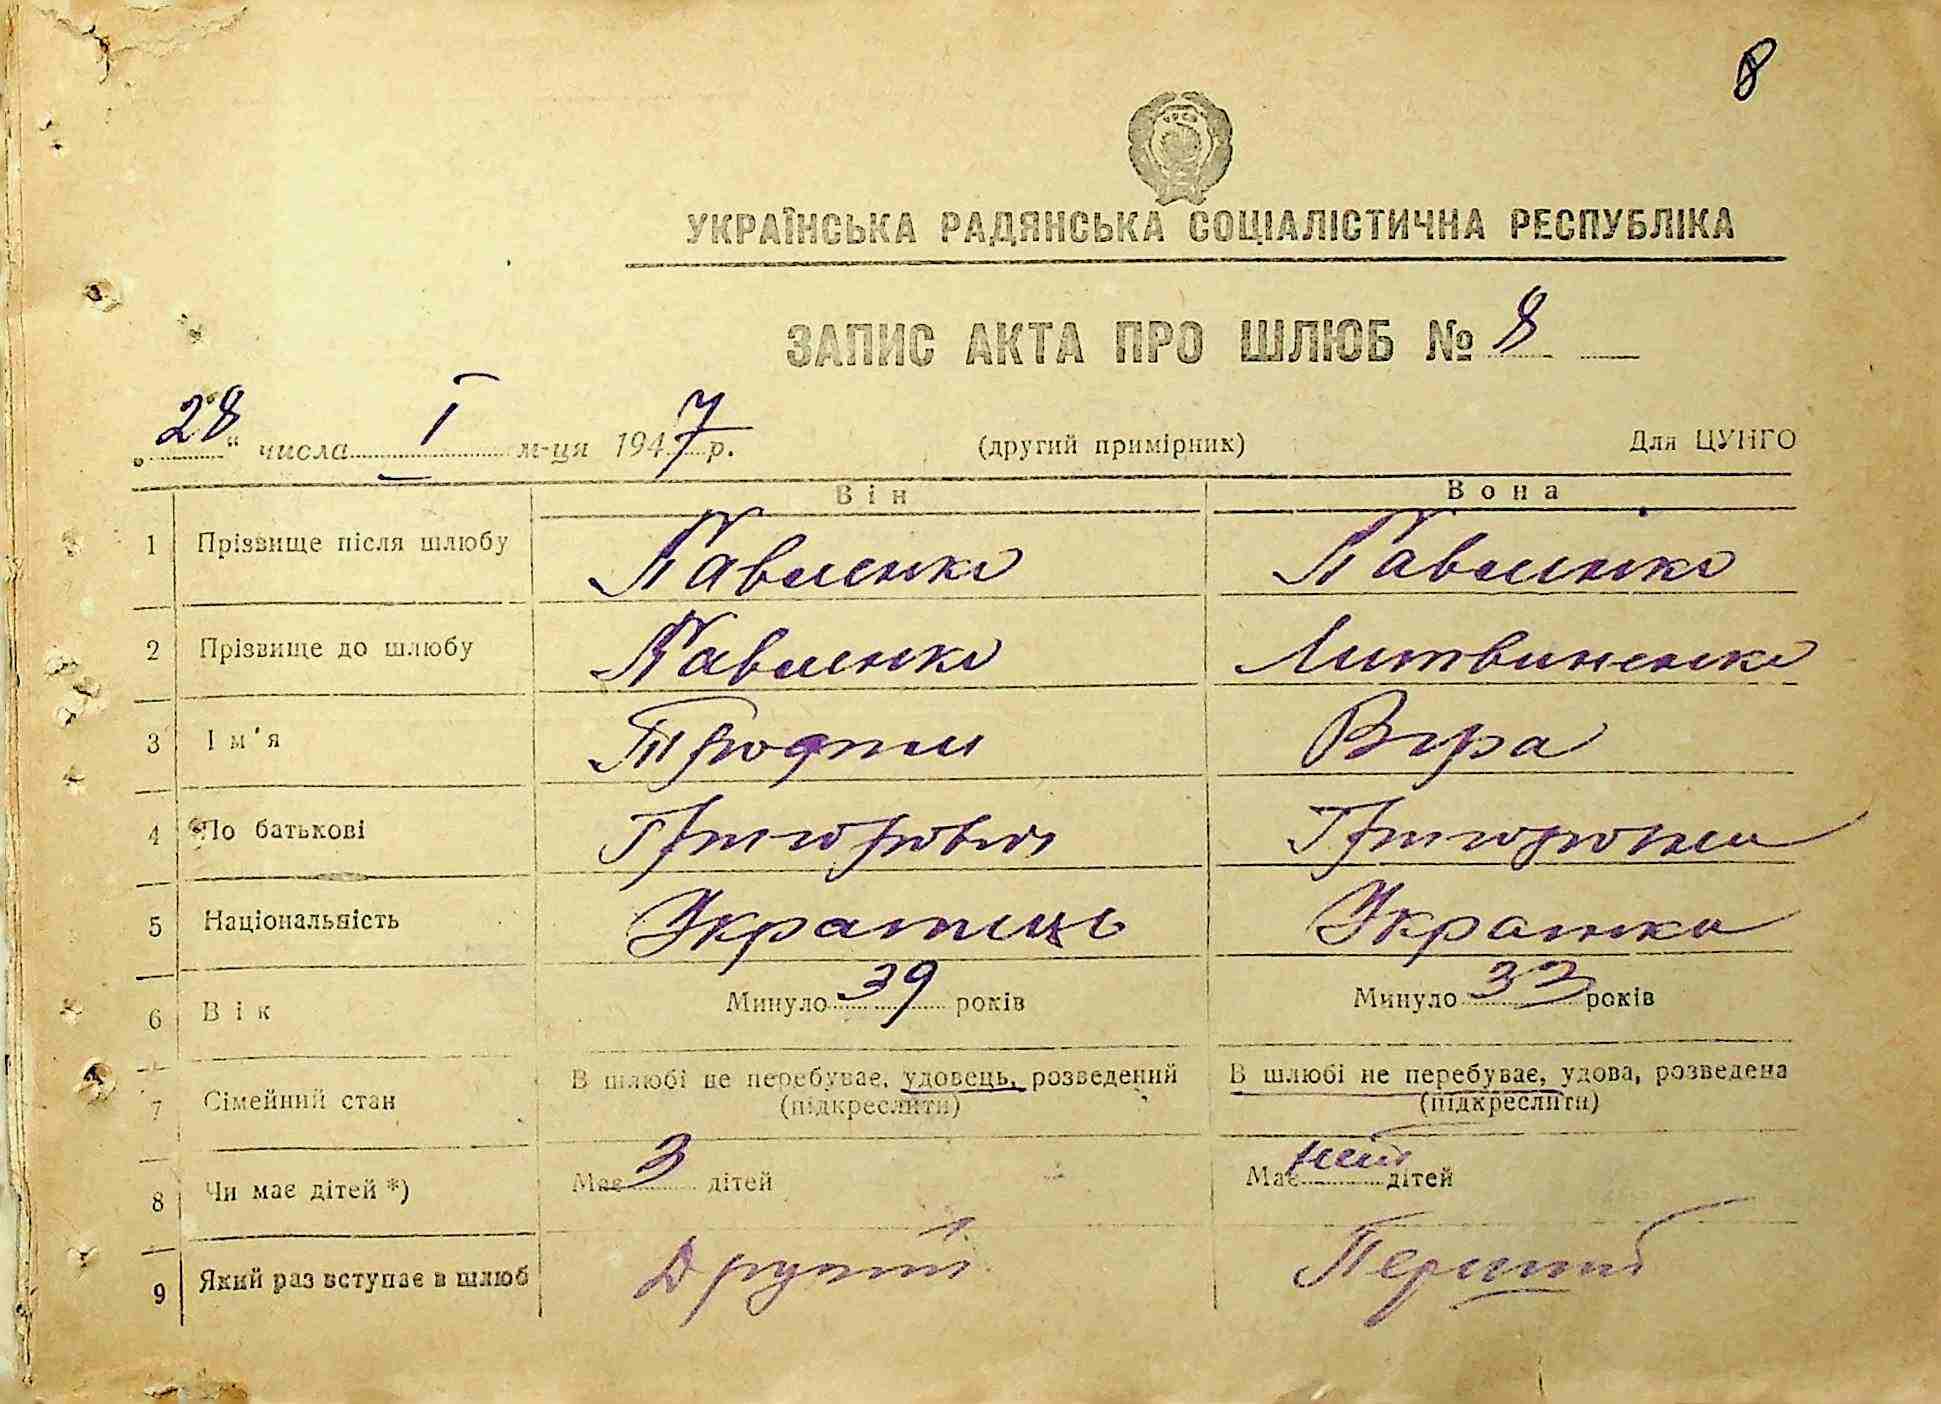 8
УКРАЇНСЬКА РАДЯНСЬКА СОЦІАЛІСТИЧНА РЕСПУБЛІКА
ЗАПИС АКТА ПРО ШЛЮБ № 8
„28“ числа I м-ця 1947 р. (другий примірник) Для ЦУНГО
Він Вона
1 Прізвище після шлюбу Павленко Павленко
2 Прізвище до шлюбу Павленко Литвиненко
3 Ім'я Трофим Віра
4 По батькові Григорович Григоровна
5 Національність Українець Українка
6 Вік Минуло 39 років Минуло 33 років
7 Сімейний стан В шлюбі не перебуває, удовець, розведений (підкреслити) В шлюбі не перебуває, удова, розведена (підкреслити)
8 Чи має дітей *) Має 3 дітей Має дітей
9 Який раз вступає в шлюб Другий Перший